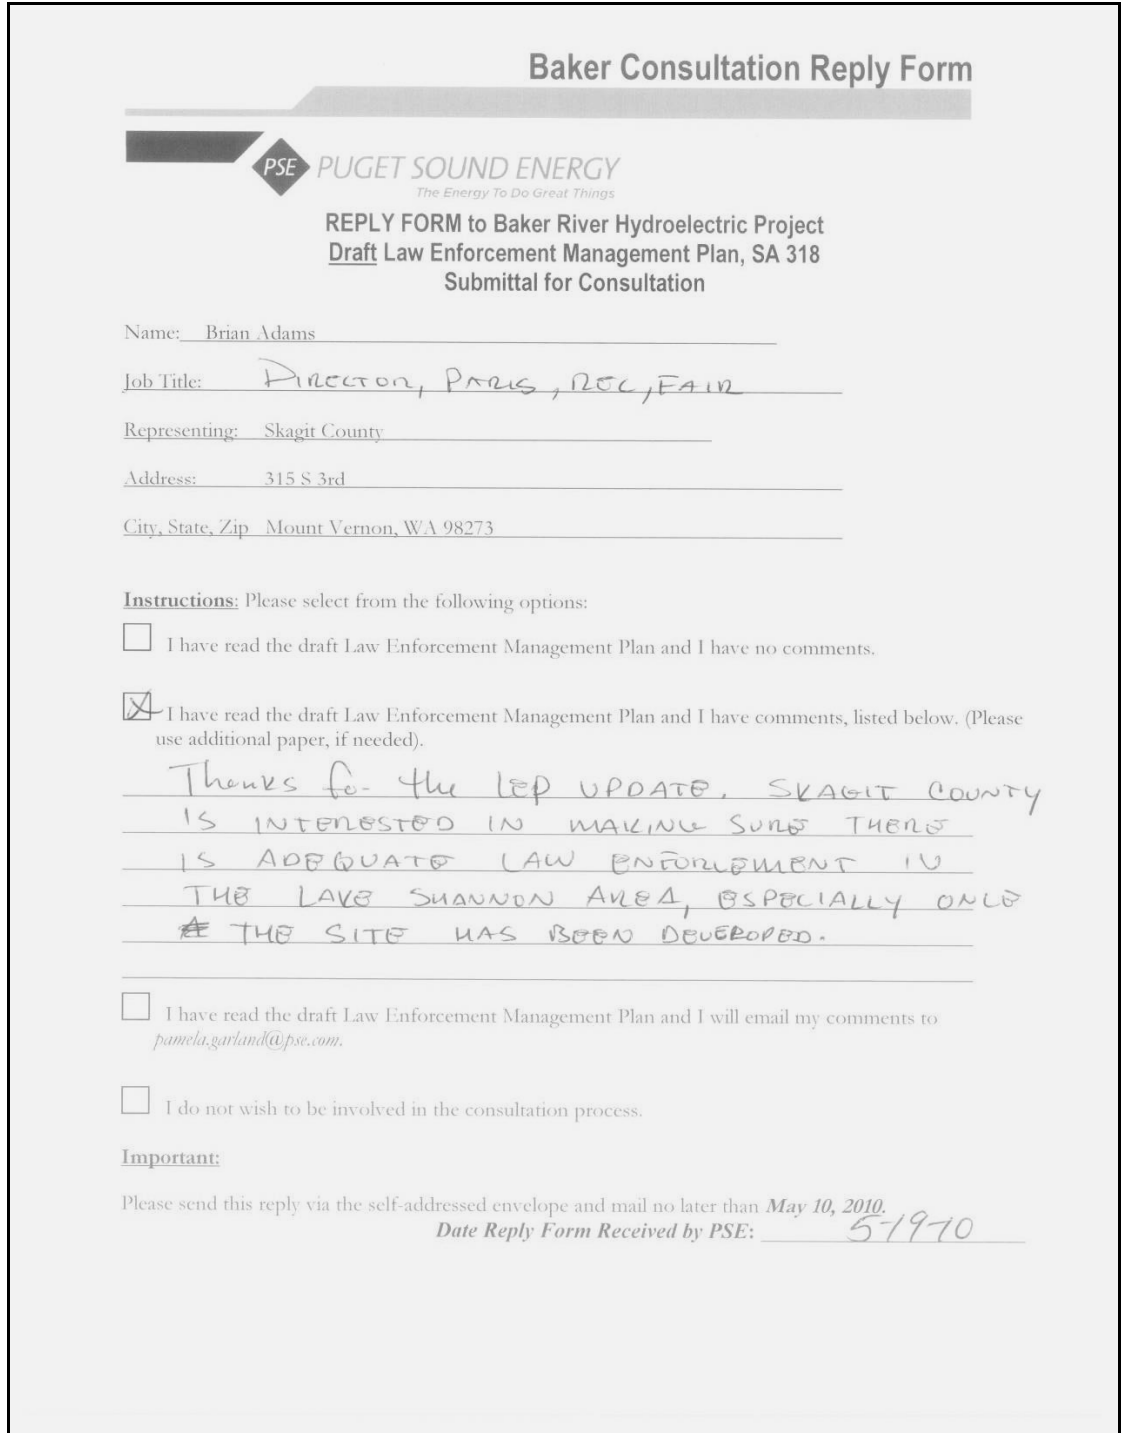 Baker Consultation Reply Form
PSE PUGET SOUND ENERGY
The Energy To Do Great Things
REPLY FORM to Baker River Hydroelectric Project
Draft Law Enforcement Management Plan, SA 318
Submittal for Consultation
Name: Brian Adams
Job Title: DIRECTOR, PARKS, REC, FAIR
Representing: Skagit County
Address: 315 S 3rd
City, State, Zip Mount Vernon, WA 98273
Instructions: Please select from the following options:
I have read the draft Law Enforcement Management Plan and I have no comments.
I have read the draft Law Enforcement Management Plan and I have comments, listed below. (Please
use additional paper, if needed).
Thanks for the LEP UPDATE. SKAGIT COUNTY
IS INTERESTED IN MAKING SURE THERE
IS ADEQUATE LAW ENFORCEMENT IN
THE LAKE SHANNON AREA, ESPECIALLY ONCE
THE SITE HAS BEEN DEVELOPED.
I have read the draft Law Enforcement Management Plan and I will email my comments to
pamela.garland@pse.com.
I do not wish to be involved in the consultation process.
Important:
Please send this reply via the self-addressed envelope and mail no later than May 10, 2010.
Date Reply Form Received by PSE: 5-19-10